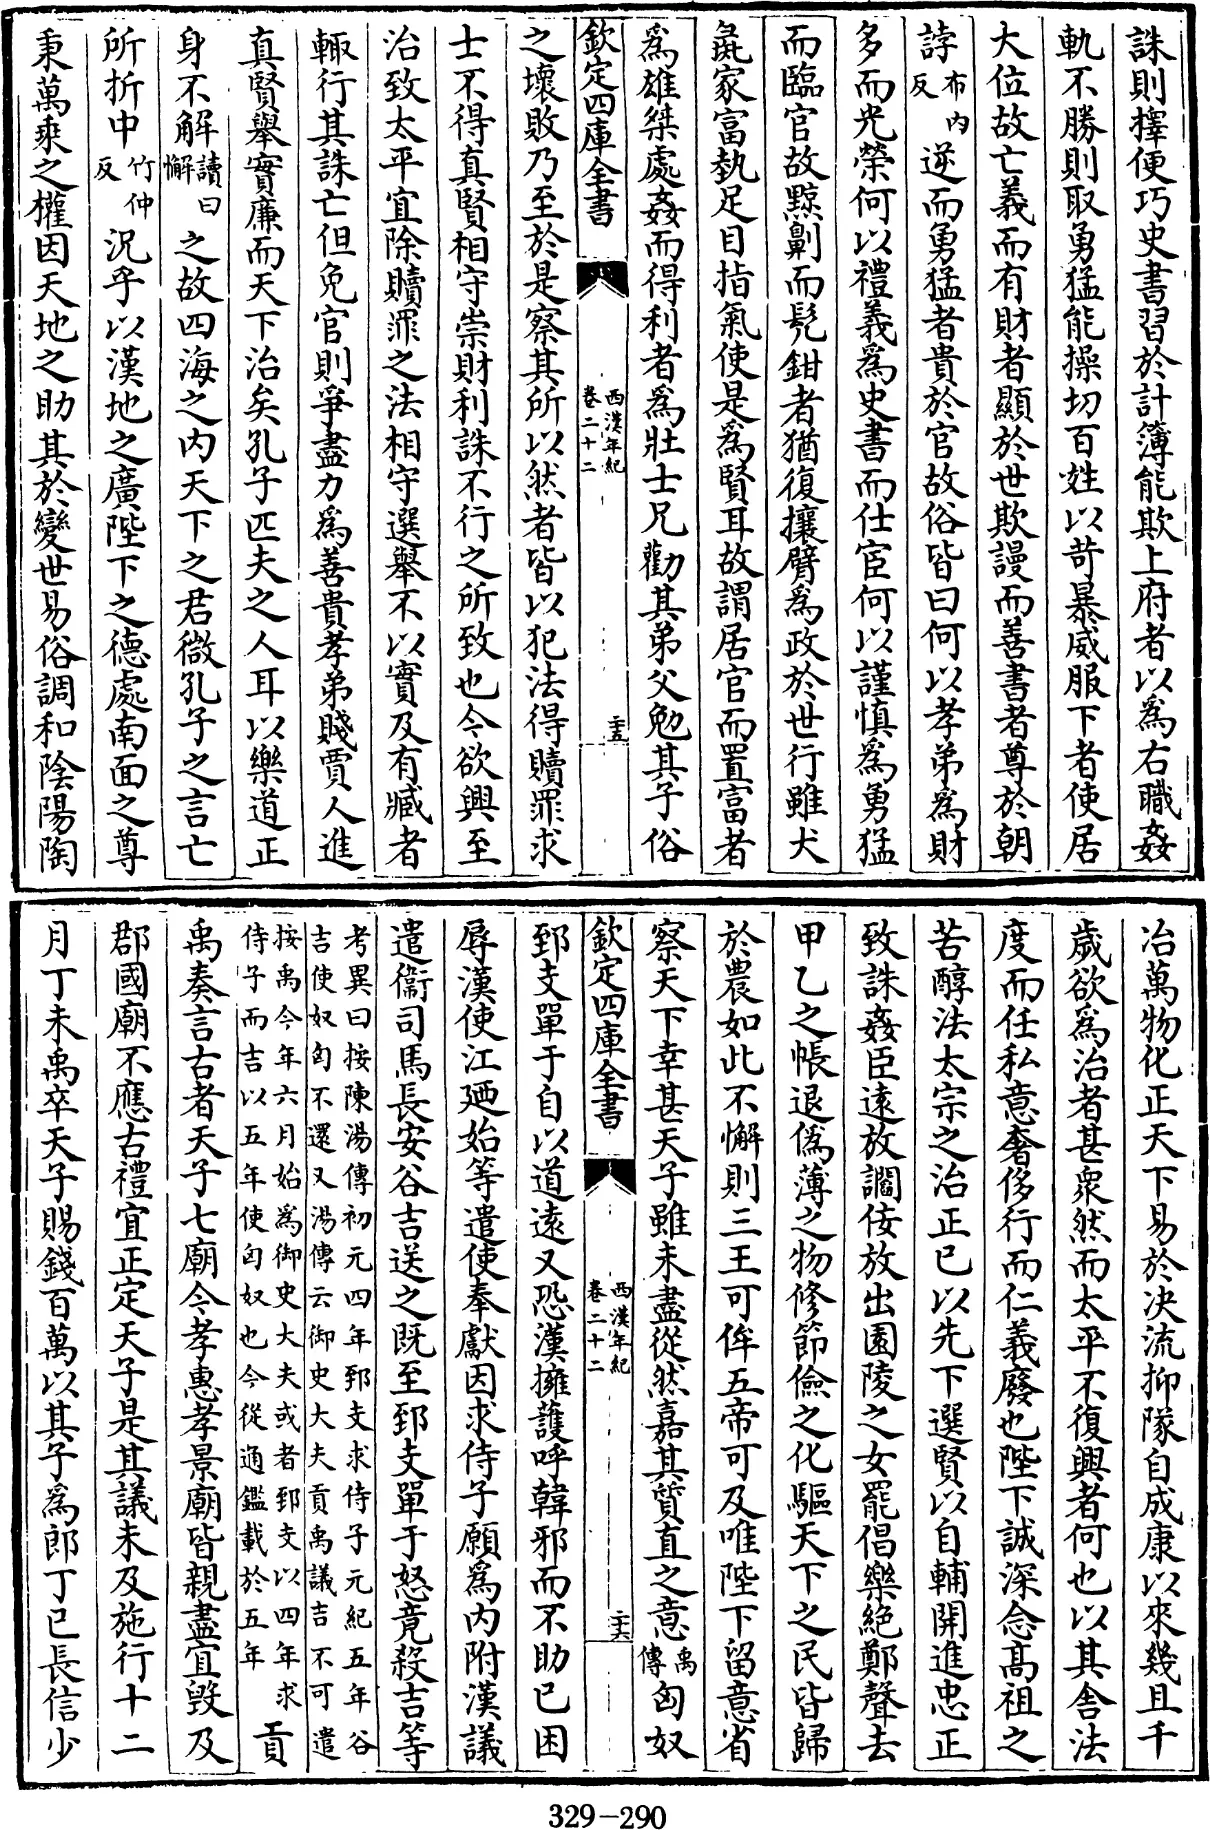 誅則擇便巧史書習於計簿能欺上府者以爲右職姦
軌不勝則取勇猛能操切百姓以苛暴威服下者使居
大位故亡義而有財者顯於世欺謾而善書者尊於朝
誖布内反逆而勇猛者貴於官故俗皆曰何以孝弟爲財
多而光榮何以禮義爲史書而仕宦何以謹慎爲勇猛
而臨官故黥劓而髠鉗者猶復攘臂爲政於世行雖犬
彘家富埶足目指氣使是爲賢耳故謂居官而置富者
爲雄桀處姦而得利者爲壯士兄勸其弟父勉其子俗
欽定四庫全書
西漢年紀
卷二十二
二十五
之壞敗乃至於是察其所以然者皆以犯法得贖罪求
士不得真賢相守崇財利誅不行之所致也今欲興至
治致太平宜除贖罪之法相守選舉不以實及有臧者
輒行其誅亡但免官則爭盡力爲善貴孝弟賤賈人進
真賢舉實廉而天下治矣孔子匹夫之人耳以樂道正
身不解讀曰懈之故四海之内天下之君微孔子之言亡
所折中竹仲反況乎以漢地之廣陛下之德處南面之尊
秉萬乘之權因天地之助其於變世易俗調和陰陽陶
冶萬物化正天下易於決流抑隊自成康以來幾且千
歲欲爲治者甚衆然而太平不復興者何也以其舍法
度而任私意奢侈行而仁義廢也陛下誠深念髙祖之
苦醇法太宗之治正已以先下選賢以自輔開進忠正
致誅姦臣遠放讇佞放出園陵之女罷倡樂絶鄭聲去
甲乙之帳退僞薄之物修節儉之化驅天下之民皆歸
於農如此不懈則三王可侔五帝可及唯陛下留意省
察天下幸甚天子雖未盡從然嘉其質直之意禹傳匈奴
欽定四庫全書
西漢年紀
卷二十二
二十六
郅支單于自以道遠又恐漢擁護呼韓邪而不助已困
辱漢使江迺始等遣使奉獻因求侍子願爲内附漢議
遣衞司馬長安谷吉送之既至郅支單于怒竟殺吉等
考異曰按陳湯傳初元四年郅支求侍子元紀五年谷
吉使奴匈不還又湯傳云御史大夫貢禹議吉不可遣
按禹今年六月始爲御史大夫或者郅支以四年求
侍子而吉以五年使匈奴也今從通鑑載於五年
貢
禹奏言古者天子七廟今孝惠孝景廟皆親盡宜毀及
郡國廟不應古禮宜正定天子是其議未及施行十二
月丁未禹卒天子賜錢百萬以其子爲郎丁巳長信少
329-290